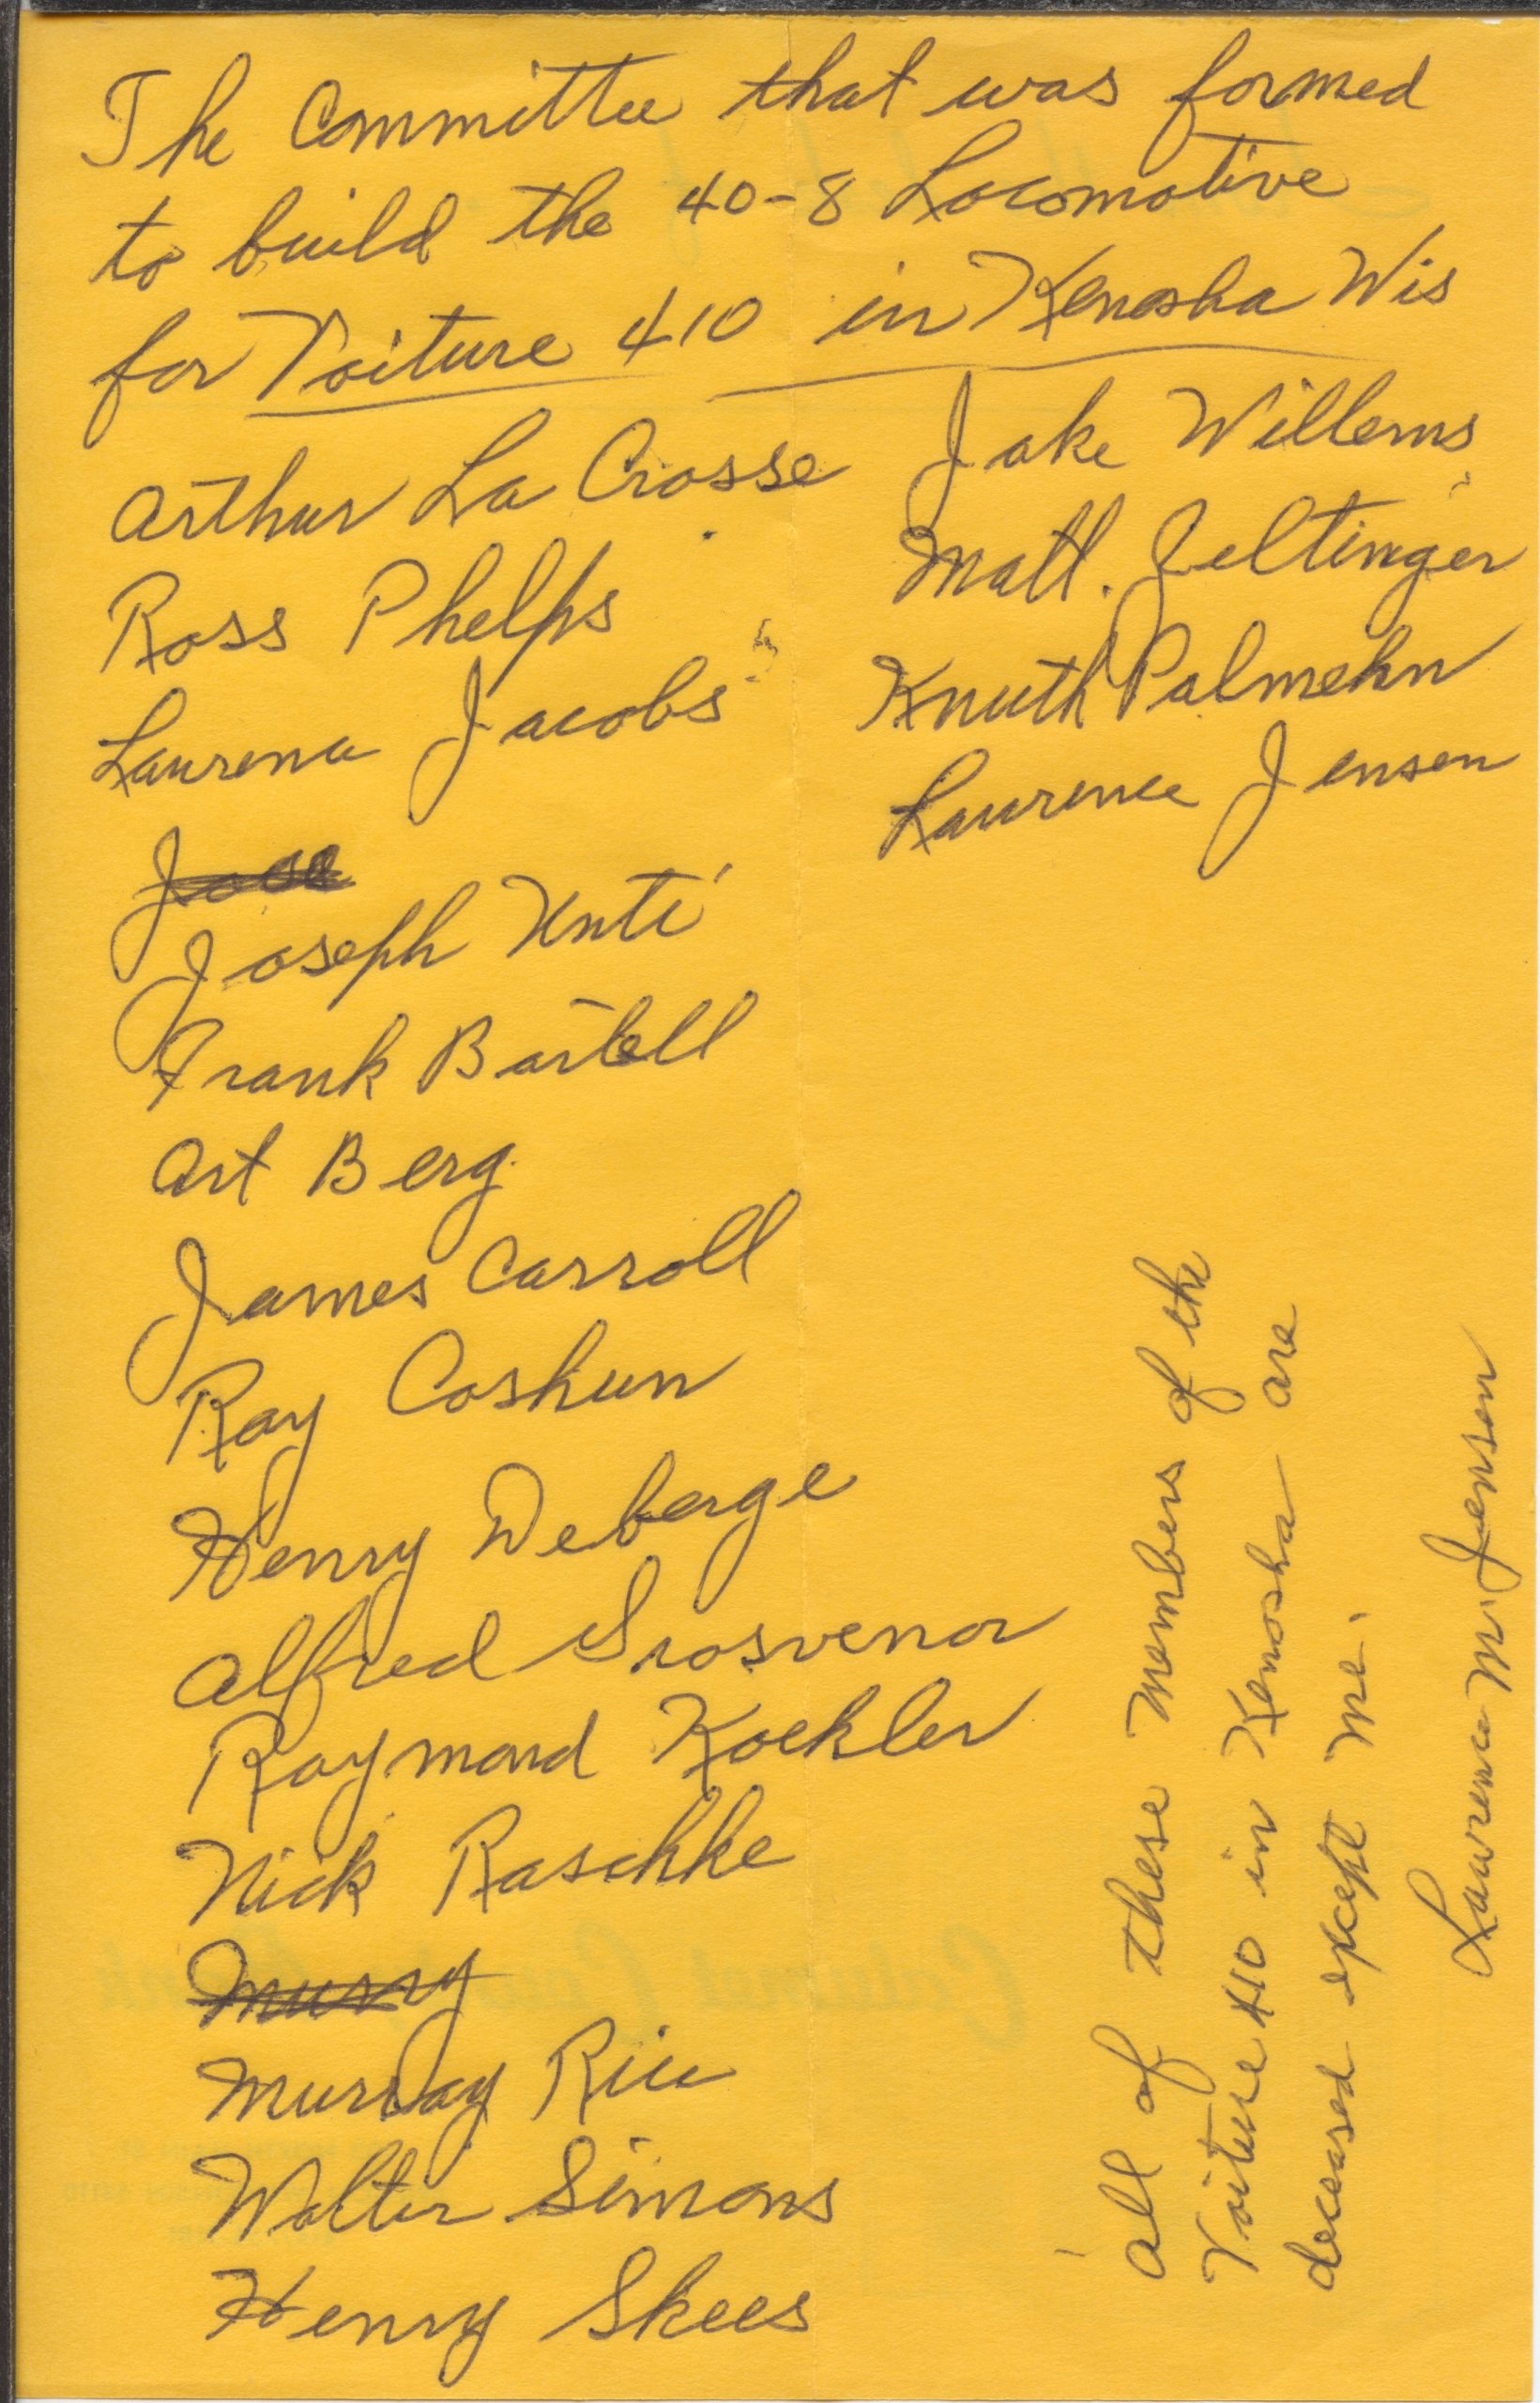 The Committee that was formed
to build the 40-8 Locomotive
for Voiture 410 in Kenosha Wis
Arthur La Crosse
Ross Phelps
Laurence Jacobs
Joseph Unti
Frank Bartell
Art Berg.
James Carroll
Ray Coshun
Henry Deberge
Alfred Grosvenor
Raymond Koehler
Nick Raschke
Murry
Murray Rice
Walter Simons
Henry Skees
Jake Willems
Matt. Jeltinger
Knuth Palmehn
Laurence Jensen
all of these members of the
Voiture 410 in Kenosha are
deceased except me.
Lawrence M. Jensen